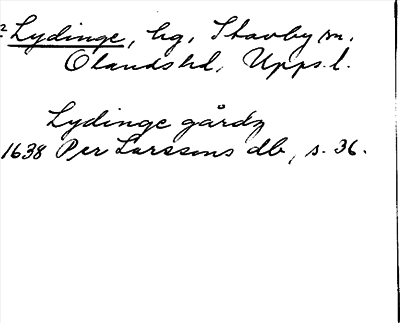 2 Lydinge, hg, Stavby sn.
Olands hd, Upps. l.
Lydinge gårdz
1638 Per Larssons db, s. 36.